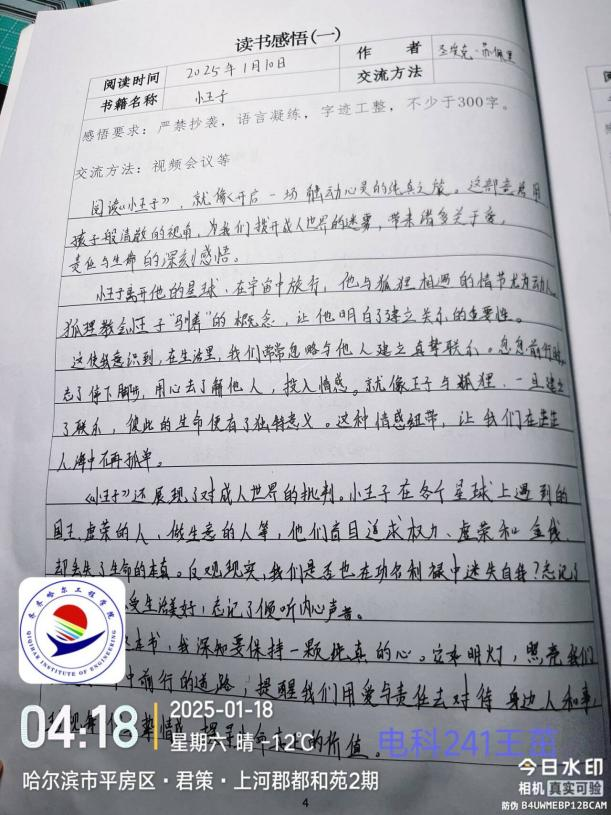 读书感悟(一)
阅读时间 2025年1月10日 作者 圣埃克·苏佩里
书籍名称 小王子 交流方法
感悟要求：严禁抄袭，语言凝练，字迹工整，不少于300字。
交流方法：视频会议等
阅读《小王子》，就像开启一场触动心灵的纯真之旅。这部童书用
孩子般清澈的视角，为我们拨开成人世界的迷雾，带来诸多关于爱，
责任与生命的深刻感悟。
小王子离开他的星球，在宇宙中旅行，他与狐狸相遇的情节尤为动人。
狐狸教会小王子“驯养”的概念，让他明白了建立关系的重要性。
这使我意识到，在生活里，我们常常忽略与他人建立真挚联系。匆匆前行时，
忘了停下脚步，用心去了解他人，投入情感。就像王子与狐狸，一旦建立
了联系，彼此的生命便有了独特意义。这种情感纽带，让我们在茫茫
人海中不再孤单。
《小王子》还展现了对成人世界的批判。小王子在各个星球上遇到的
国王、虚荣的人，做生意的人等，他们盲目追求权力、虚荣和金钱，
却丢失了生命的本真。反观现实，我们是否也在功名利禄中迷失自我？忘记了
受生活美好，忘记了倾听内心声音。
本书，我深知要保持一颗纯真的心。它本明灯，照亮我们
中前行的道路，提醒我们用爱与责任去对待身边人和事，
情感 的价值。
齐齐哈尔工程学院
QIQIHAR INSTITUTE OF ENGINEERING
04:18
2025-01-18
星期六 晴 -12℃
电科241王茁
哈尔滨市平房区·君策·上河郡都和苑2期
今日水印
相机 真实可验
防伪 B4UWMEBP12BCAM
4